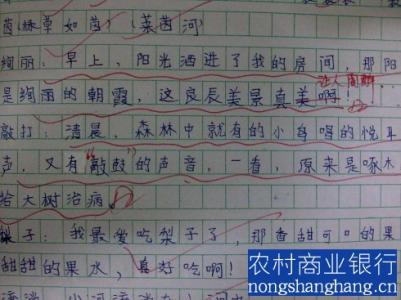 茵(绿草如茵)(莱茵河)
绚丽:早上,阳光洒进了我的房间,那阳
是绚丽的朝霞,这良辰美景真美啊!
敲打:清晨,森林中就有的小鸟唱的悦耳
声,又有“敲鼓”的声音,一看,原来是啄木
给大树治病
梨子:我最爱吃梨子了,那香甜可口的果
甜甜的果水,真好吃啊!
农村商业银行
nongshanghang.cn